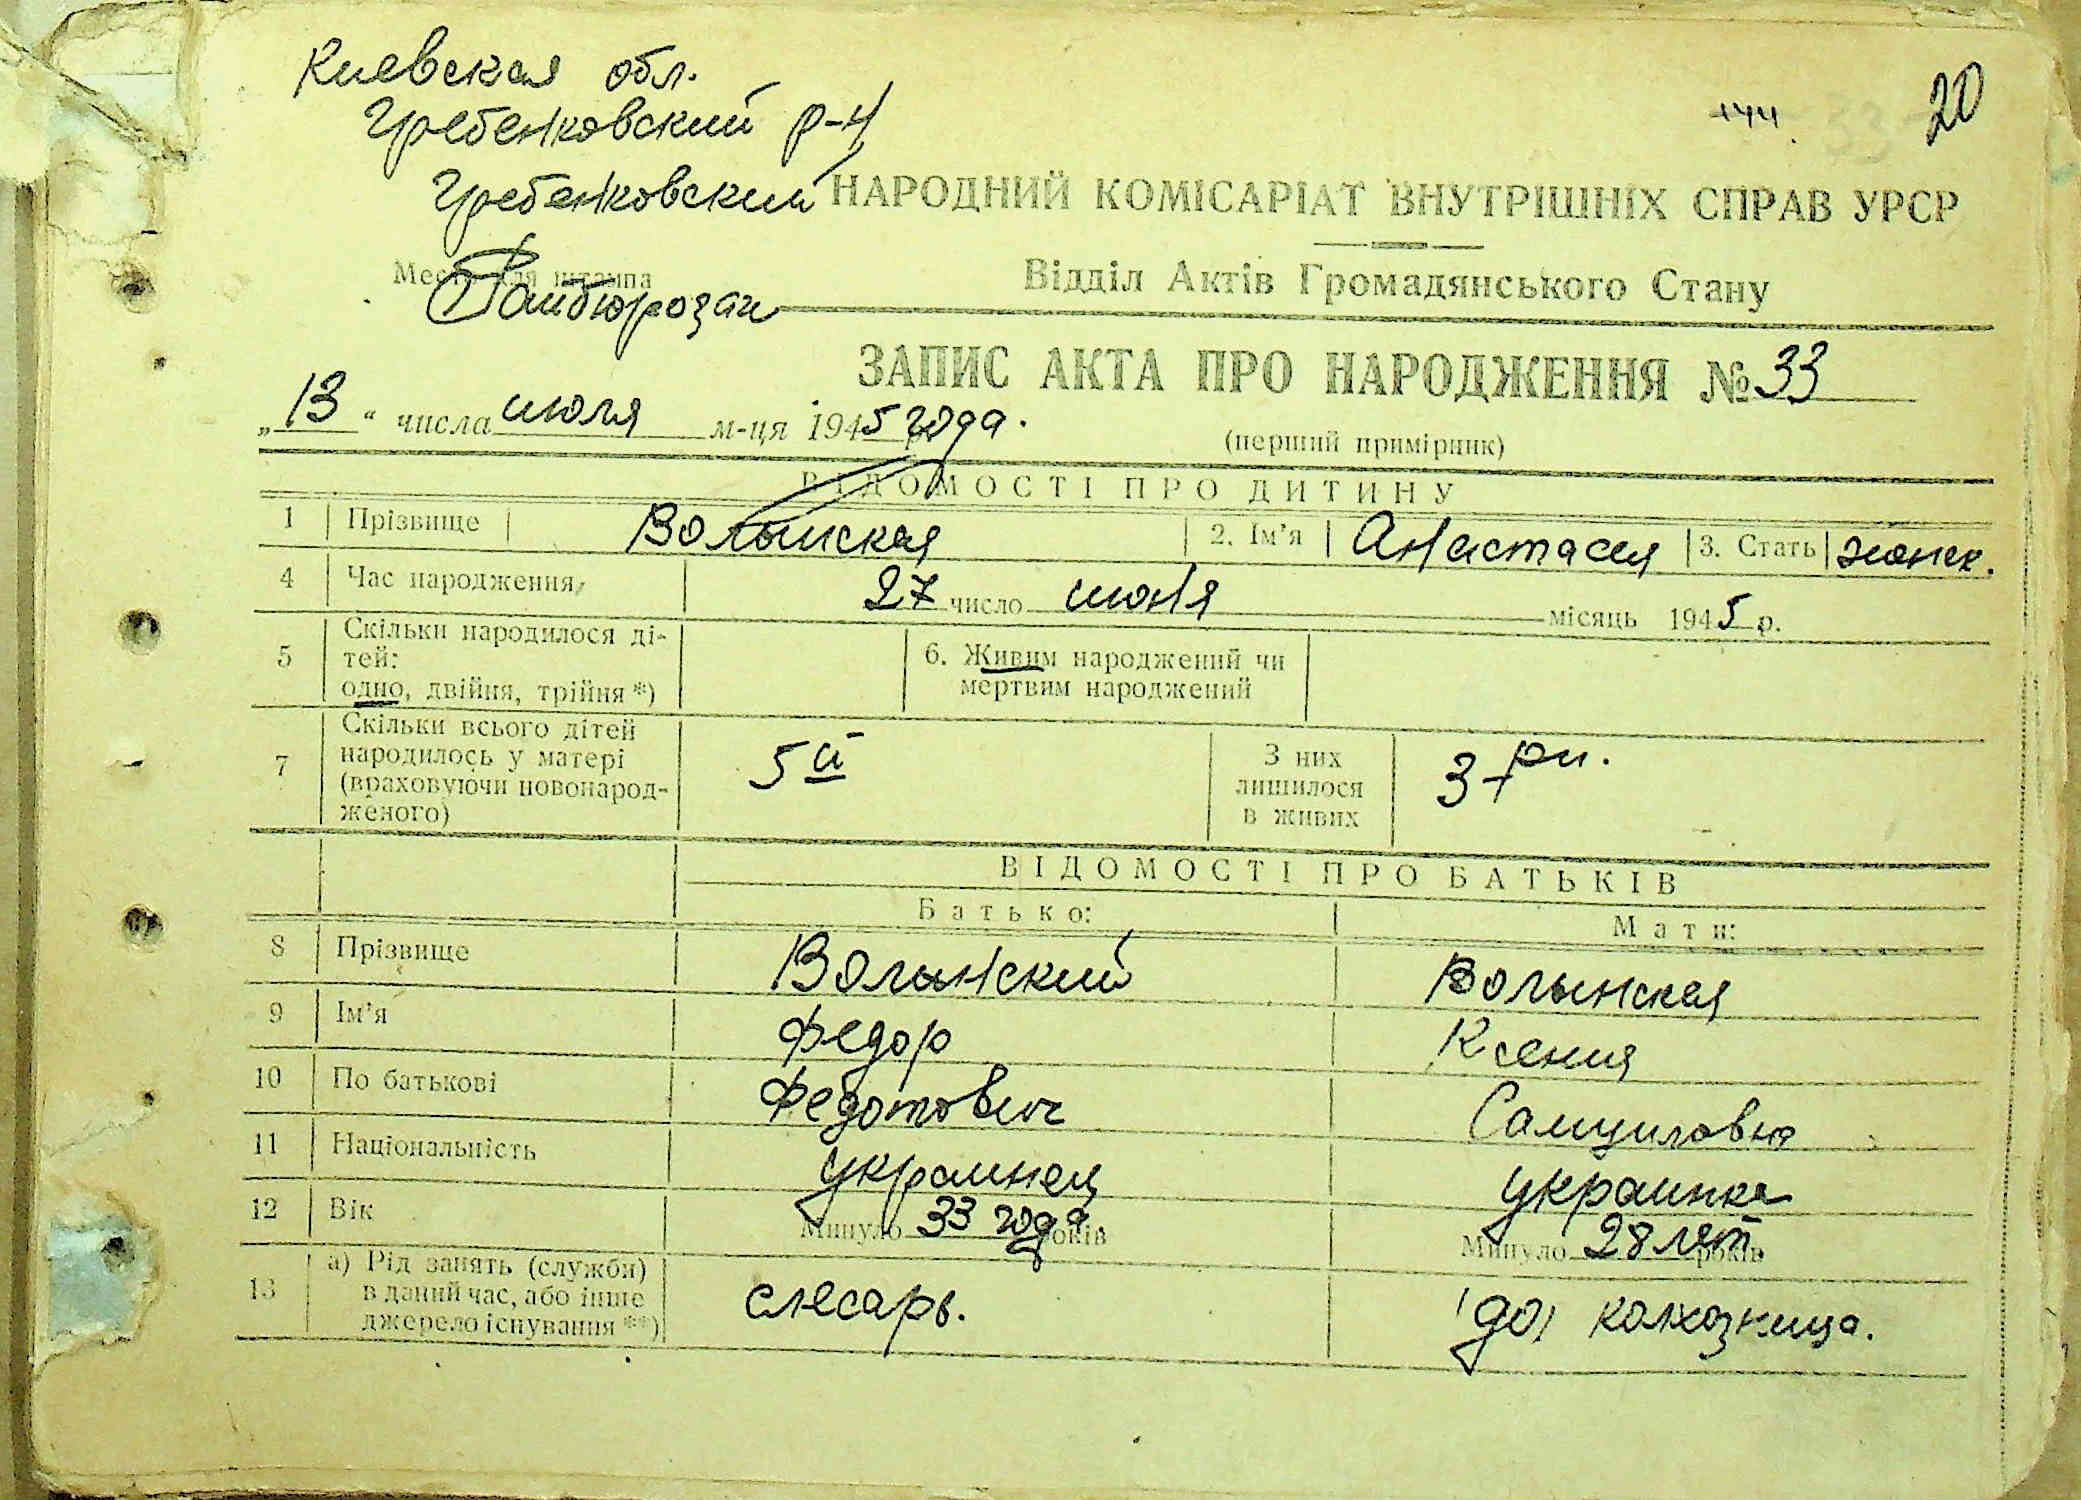 Киевская обл.
Гребенковский р-н
20
Гребенковский
НАРОДНИЙ КОМІСАРІАТ ВНУТРІШНІХ СПРАВ УРСР
Місце для штампа
Райбюрозаг
Відділ Актів Громадянського Стану
ЗАПИС АКТА ПРО НАРОДЖЕННЯ № 33
„13“ числа июля м-ця 1945 года.
(перший примірник)
ВІДОМОСТІ ПРО ДИТИНУ
1 Прізвище Волынская 2. Ім'я Анастасия 3. Стать женск.
4 Час народження 27 число июня місяць 1945 р.
5 Скільки народилося ді-
тей:
одно, двійня, трійня *)
6. Живим народжений чи
мертвим народжений
7 Скільки всього дітей
народилось у матері
(враховуючи новонарод-
женого)
5й
З них
лишилося
в живих
3-
ВІДОМОСТІ ПРО БАТЬКІВ
Батько: Мати:
8 Прізвище Волынский Волынская
9 Ім'я Федор Ксения
10 По батькові Федотович Самуиловна
11 Національність украинец украинка
12 Вік Минуло 33 года років Минуло 28 лет років
13 а) Рід занять (служби)
в даний час, або інше
джерело існування **)
слесарь. колхозница.